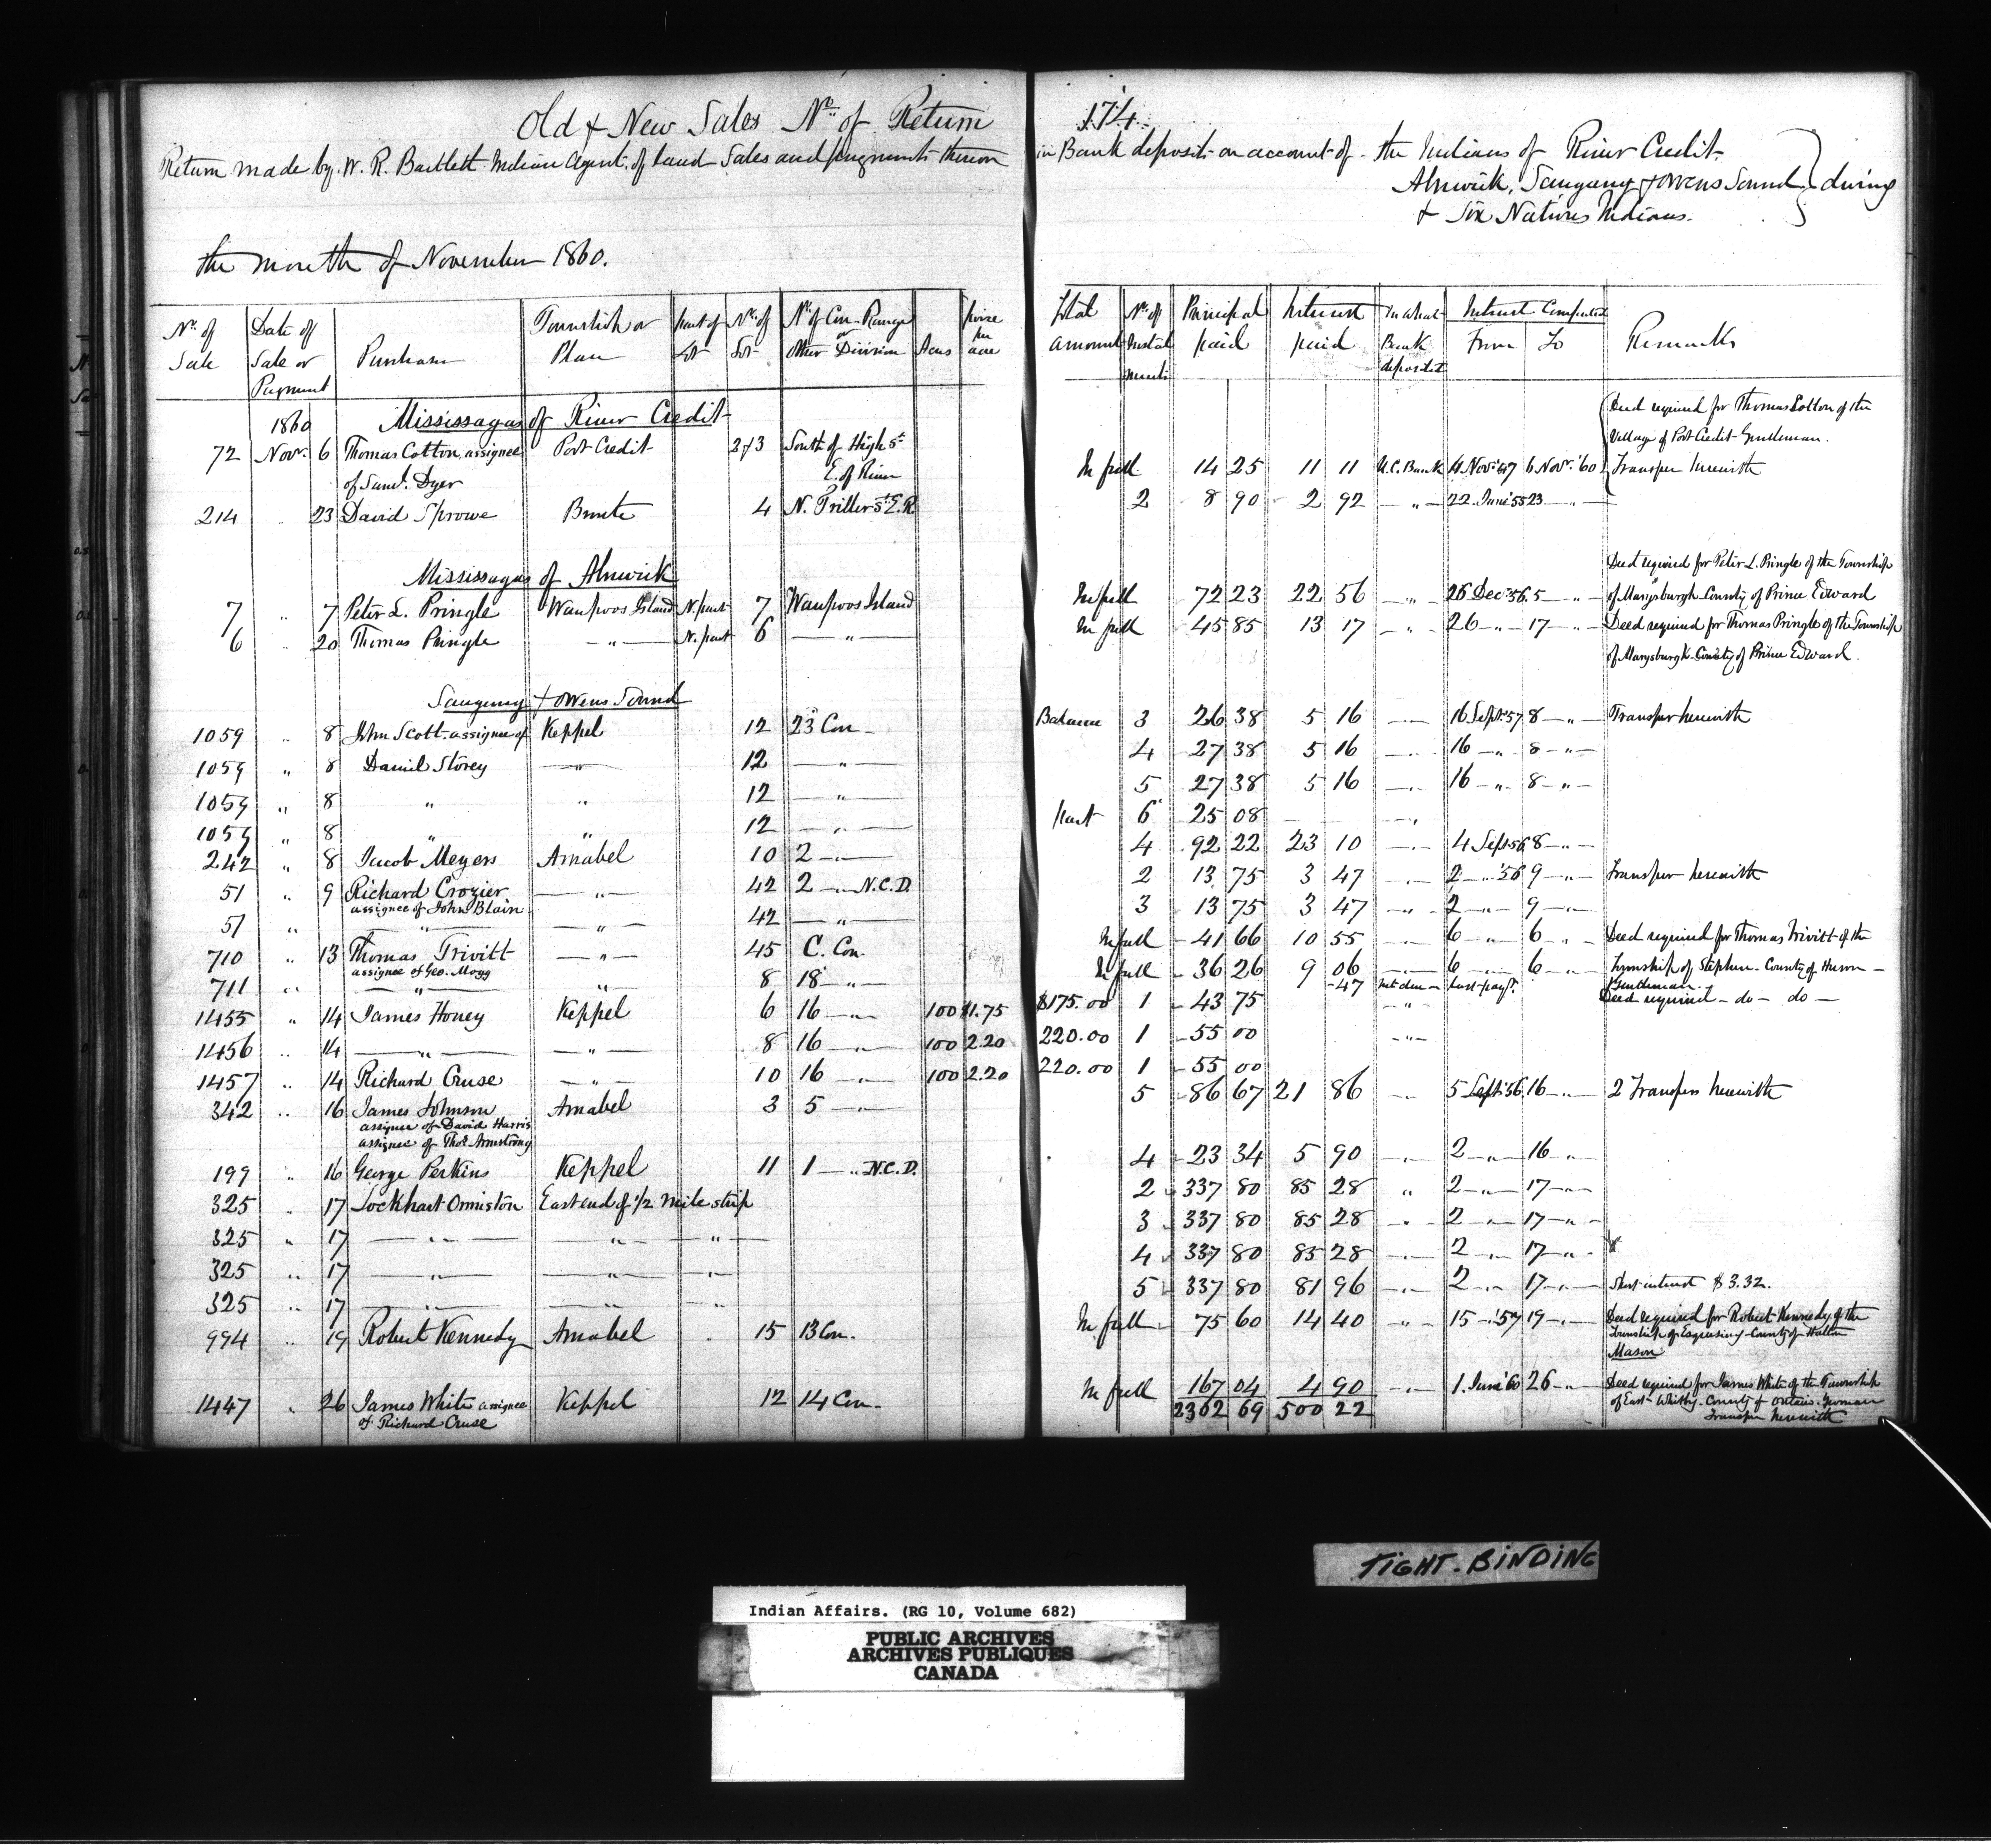 Old & New Sales No. of Return 174
Return made by W. R. Bartlett Indian Agent of land Sales and payments thereon in Bank deposits on account of the Indians of River Credit
Alnwick, Saugeeng & Owens Sound } during
& Six Nations Indians.
the month of November 1860.
No. of Sale | Date of Sale or Payment | Purchaser | Township or Plan | part of Lot | No. of Lot | No. of Con. Range or Other Division | Acres | price per acre | Total amount | No. of Instalments | Principal paid | Interest paid | In what Bank deposited | Interest Computed From | To | Remarks
1860 Mississagas of River Credit
72 Nov. 6 Thomas Cotton assignee Port Credit 2 & 3 South of High St. In full 14 25 11 11 U.C. Bank 4 Nov. '47 6 Nov. '60 Deed required for Thomas Cotton of the
of Saml. Dyer E. of River Village of Port Credit Gentleman.
Transfer herewith
214 " 23 David Sprowe 4 2 8 90 2 92 " 22 June '55 23 "
Mississagas of Alnwick
7 " 7 Peter L. Pringle Waupoos Island N. part 7 Waupoos Island In full 72 23 22 56 " 26 Dec '56 5 " Deed required for Peter L. Pringle of the Township
of Marysburgh County of Prince Edward
6 " 20 Thomas Pringle " N. part 6 " In full 45 85 13 17 " 26 " 17 " Deed required for Thomas Pringle of the Township
of Marysburgh County of Prince Edward.
Saugeeng & Owens Sound
1059 " 8 John Scott assignee of Keppel 12 23 Con. Balance 3 26 38 5 16 " 16 Sept. '57 8 " Transfer herewith
1059 " 8 Daniel Storey " 12 " 4 27 38 5 16 " 16 " 8 "
1059 " 8 " " 12 " 5 27 38 5 16 " 16 " 8 "
1059 " 8 " " 12 " part 6 25 08 "
242 " 8 Jacob Meyers Amabel 10 2 " 4 92 22 23 10 " 4 Sept 56 8 "
51 " 9 Richard Crozier " 42 2 " N.C.D. 2 13 75 3 47 " 2 " '56 9 " Transfer herewith
assignee of John Blain
51 " " " 42 " 3 13 75 3 47 " 2 " 9 "
710 " 13 Thomas Trivitt " 45 C. Con. In full 41 66 10 55 " 6 " 6 " Deed required for Thomas Trivitt of the
assignee of Geo. Mogg Township of Stephen County of Huron
711 " " " 8 18 " In full 36 26 9 06 " 6 " 6 " Gentleman.
47 Int. due on last payt. Deed required do do
1455 " 14 James Honey Keppel 6 16 " 100 $1.75 $175.00 1 43 75 "
1456 " 14 " " 8 16 " 100 2.20 220.00 1 55 00 "
1457 " 14 Richard Cruse " 10 16 " 100 2.20 220.00 1 55 00
342 " 16 James Johnson Amabel 3 5 " 5 86 67 21 86 " 5 Sept '56 16 " 2 Transfers herewith
assignee of David Harris
assignee of Thos. Armstrong
199 " 16 George Perkins Keppel 11 1 " N.C.D. 4 23 34 5 90 " 2 " 16 "
325 " 17 Lockhart Ormiston East end of 1/2 Mile strip 2 337 80 85 28 " 2 " 17 "
325 " 17 " " " 3 337 80 85 28 " 2 " 17 "
325 " 17 " " " 4 337 80 85 28 " 2 " 17 "
325 " 17 " " " 5 337 80 81 96 " 2 " 17 " Short interest $3.32.
994 " 19 Robert Kennedy Amabel 15 13 Con. In full 75 60 14 40 " 15 " '57 19 " Deed required for Robert Kennedy of the
Township of Esquesing County of Halton
Mason
1447 " 26 James White assignee Keppel 12 14 Con. In full 167 04 4 90 " 1 June '60 26 " Deed required for James White of the Township
of Richard Cruse 2362 69 500 22 of East Whitby County of Ontario. Yeoman
Transfer herewith
TIGHT-BINDING
Indian Affairs. (RG 10, Volume 682)
PUBLIC ARCHIVES
ARCHIVES PUBLIQUES
CANADA